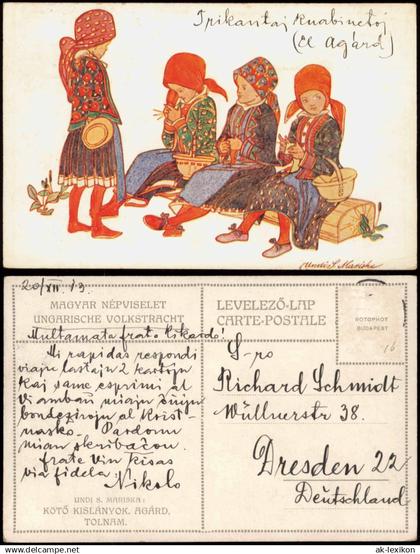 Trikantaj Knabinetoj
(el Agárd)
Undi S. Mariska
20/XII 13.
MAGYAR NÉPVISELET
UNGARISCHE VOLKSTRACHT
LEVELEZŐ-LAP
CARTE-POSTALE
ROTOPHOT
BUDAPEST
16
Multamata frato Rikardo!
Mi rapidas respondi
viajn lastajn 2 kartojn
kaj same esprimi al
Vi ambaŭ miajn
bondezirojn al Krist-
nasko. Pardonu
mian skribaĉon.
Frate Vin kisas
via fidela
Nikolo
S-ro
Richard Schmidt
Wüllnerstr 38.
Dresden 22
Deutschland
UNDI S. MARISKA:
KÖTŐ KISLÁNYOK. AGÁRD,
TOLNAM.
Visit ak-ansichtskarten.de
ak-lexikon.de